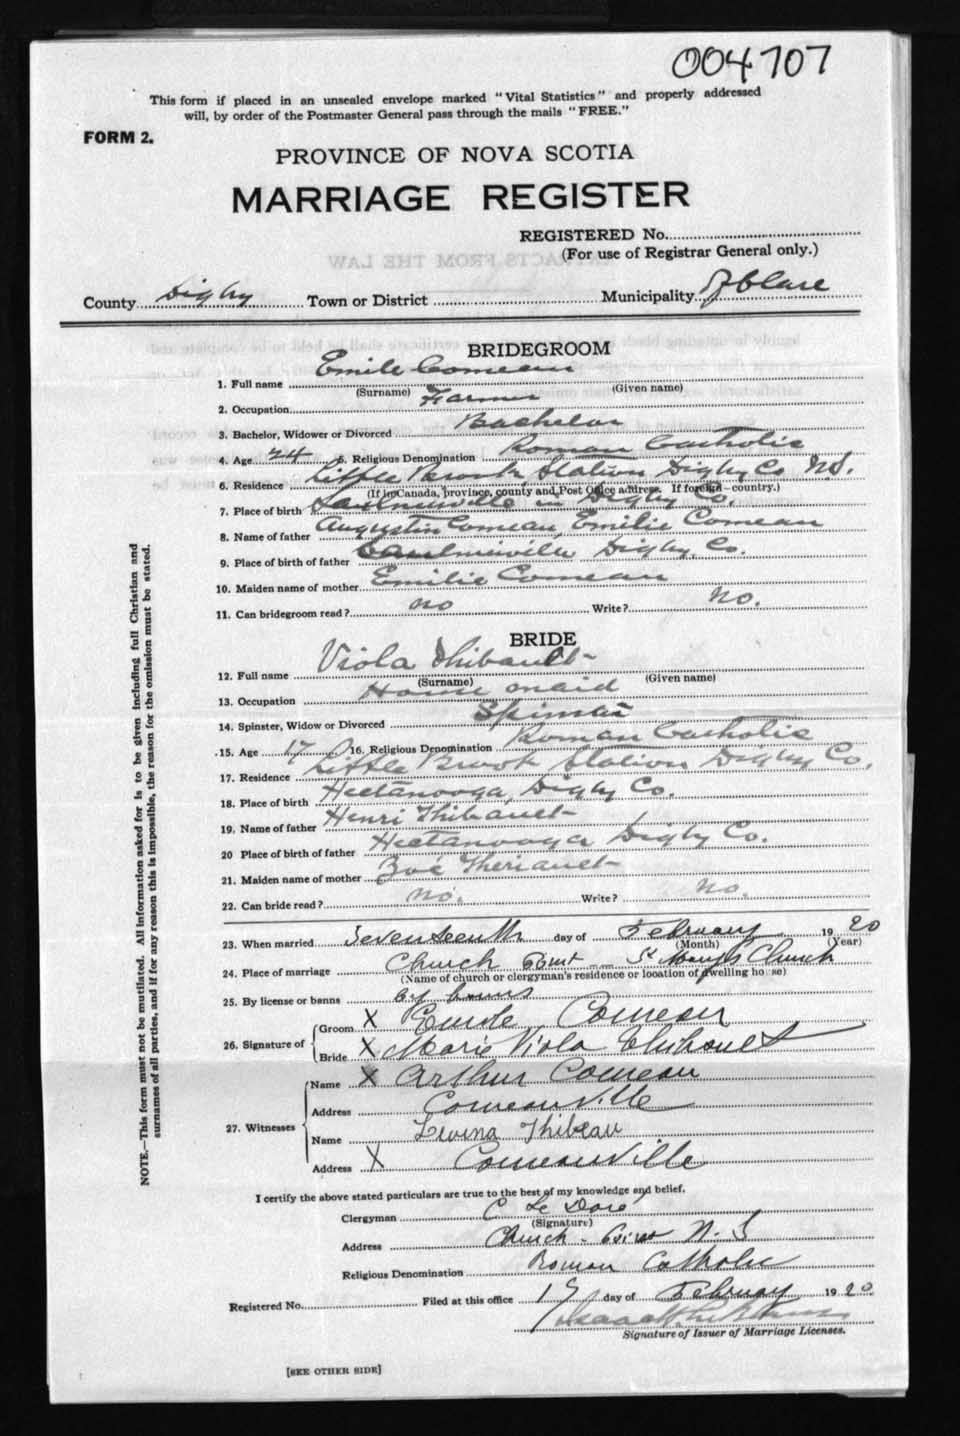 004707
This form if placed in an unsealed envelope marked "Vital Statistics" and properly addressed
will, by order of the Postmaster General pass through the mails "FREE."
FORM 2.
PROVINCE OF NOVA SCOTIA
MARRIAGE REGISTER
REGISTERED No.
(For use of Registrar General only.)
County Digby Town or District Municipality Clare
BRIDEGROOM
1. Full name Emile Comeau
(Surname) (Given name)
2. Occupation Farmer
3. Bachelor, Widower or Divorced Bachelor
4. Age 24 5. Religious Denomination Roman Catholic
6. Residence Little Brook Station Digby Co N.S.
(If in Canada, province, county and Post Office address. If foreign—country.)
7. Place of birth Saulnierville in Digby Co.
8. Name of father Augustin Comeau, Emilie Comeau
9. Place of birth of father Saulnierville Digby Co.
10. Maiden name of mother Emilie Comeau
11. Can bridegroom read? no Write? No.
BRIDE
12. Full name Viola Thibault
(Surname) (Given name)
13. Occupation House maid
14. Spinster, Widow or Divorced Spinster
15. Age 17 16. Religious Denomination Roman Catholic
17. Residence Little Brook Station Digby Co.
18. Place of birth Hectanooga, Digby Co.
19. Name of father Henri Thibault
20 Place of birth of father Hectanooga Digby Co.
21. Maiden name of mother Zoé Theriault
22. Can bride read? no. Write? No.
23. When married Seventeenth day of February 1920
(Month) (Year)
24. Place of marriage Church Point -- St Mary's Church
(Name of church or clergyman's residence or location of dwelling house)
25. By license or banns by banns
26. Signature of Groom X Emile Comeau
Bride X Marie Viola Thibault
27. Witnesses Name X Arthur Comeau
Address Comeauville
Name Levina Thibeau
Address X Comeauville
I certify the above stated particulars are true to the best of my knowledge and belief.
Clergyman C Le Doré
(Signature)
Address Church-Point N.S
Religious Denomination Roman Catholic
Registered No. Filed at this office 17 day of February 1920
Signature of Issuer of Marriage Licenses.
[SEE OTHER SIDE]
NOTE.—This form must not be mutilated. All information asked for is to be given including full Christian and
surnames of all parties, and if for any reason this is impossible, the reason for the omission must be stated.